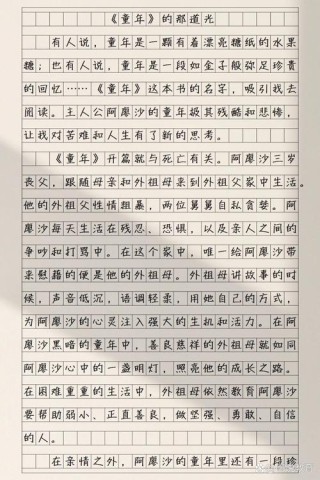 《童年》的那道光
有人说，童年是一颗有着漂亮糖纸的水果
糖；也有人说，童年是一段如金子般弥足珍贵
的回忆……《童年》这本书的名字，吸引我去
阅读。主人公阿廖沙的童年极其残酷和悲惨，
让我对苦难和人生有了新的思考。
《童年》开篇就与死亡有关。阿廖沙三岁
丧父，跟随母亲和外祖母来到外祖父家中生活。
他的外祖父性情粗暴，两位舅舅自私贪婪。阿
廖沙每天生活在残忍、恐惧，以及亲人之间的
争吵和打骂中。在这个家中，唯一给阿廖沙带
来慰藉的便是他的外祖母。外祖母讲故事的时
候，声音低沉，语调轻柔，用他自己的方式，
为阿廖沙的心灵注入强大的生机和活力。在阿
廖沙黑暗的童年中，善良慈祥的外祖母就如同
阿廖沙心中的一盏明灯，照亮他的成长之路。
在困难重重的生活中，外祖母依然教育阿廖沙
要帮助弱小、正直善良，做坚强、勇敢、自信
的人。
在亲情之外，阿廖沙的童年里还有一段珍